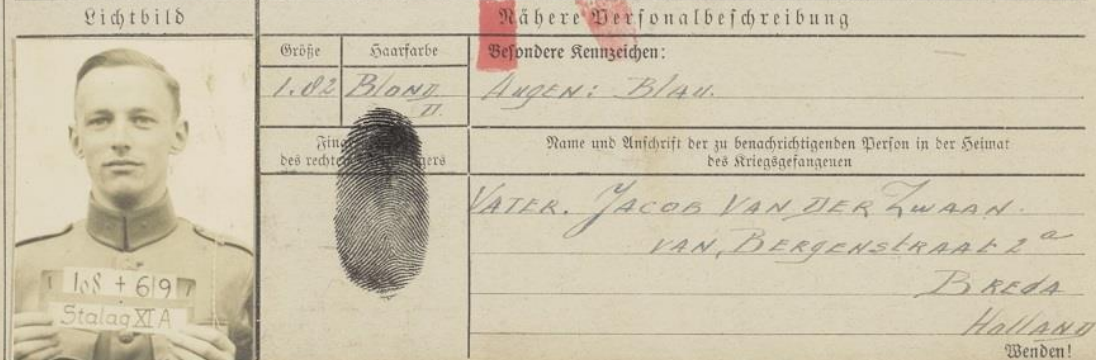 Lichtbild
Nähere Personalbeschreibung
Größe
Haarfarbe
Besondere Kennzeichen:
1.82
Blond
II.
Augen: Blau.
des rechten
Name und Anschrift der zu benachrichtigenden Person in der Heimat
des Kriegsgefangenen
VATER. JACOB VAN DER ZWAAN.
VAN, BERGENSTRAAT 2a
BREDA
HOLLAND
Stalag XI A
Wenden!